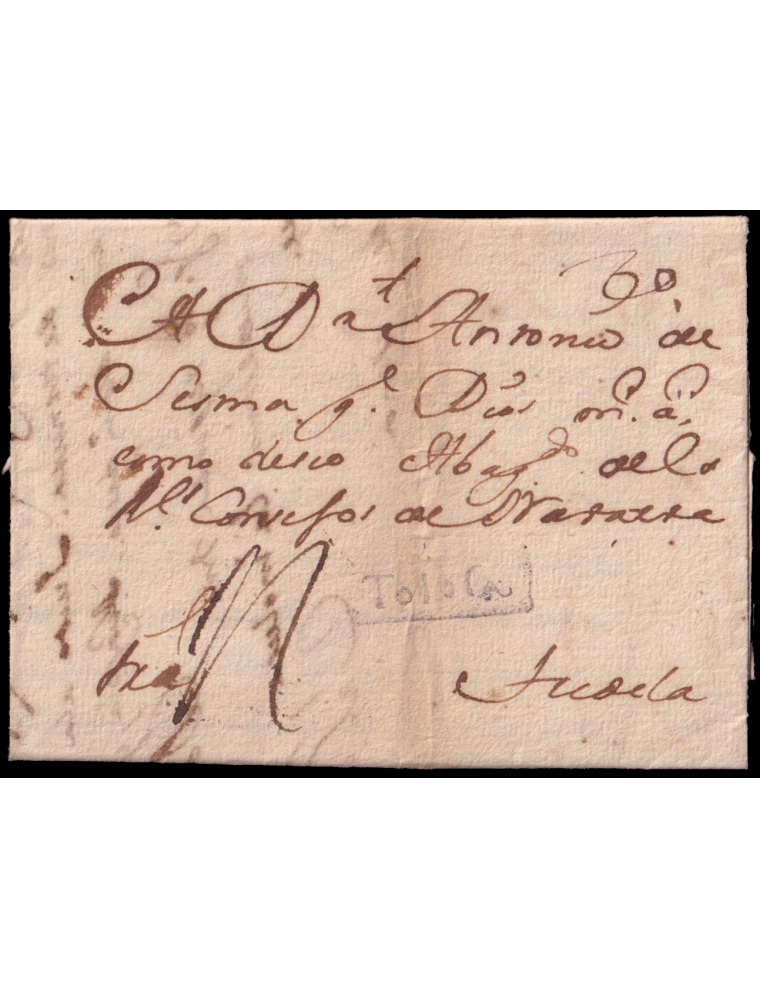 A Dn Antonio de
Sesma qe Dios ms as
como deseo Abogdo de los
Rls Consejos de Navarra
TOLOSA
Tudela